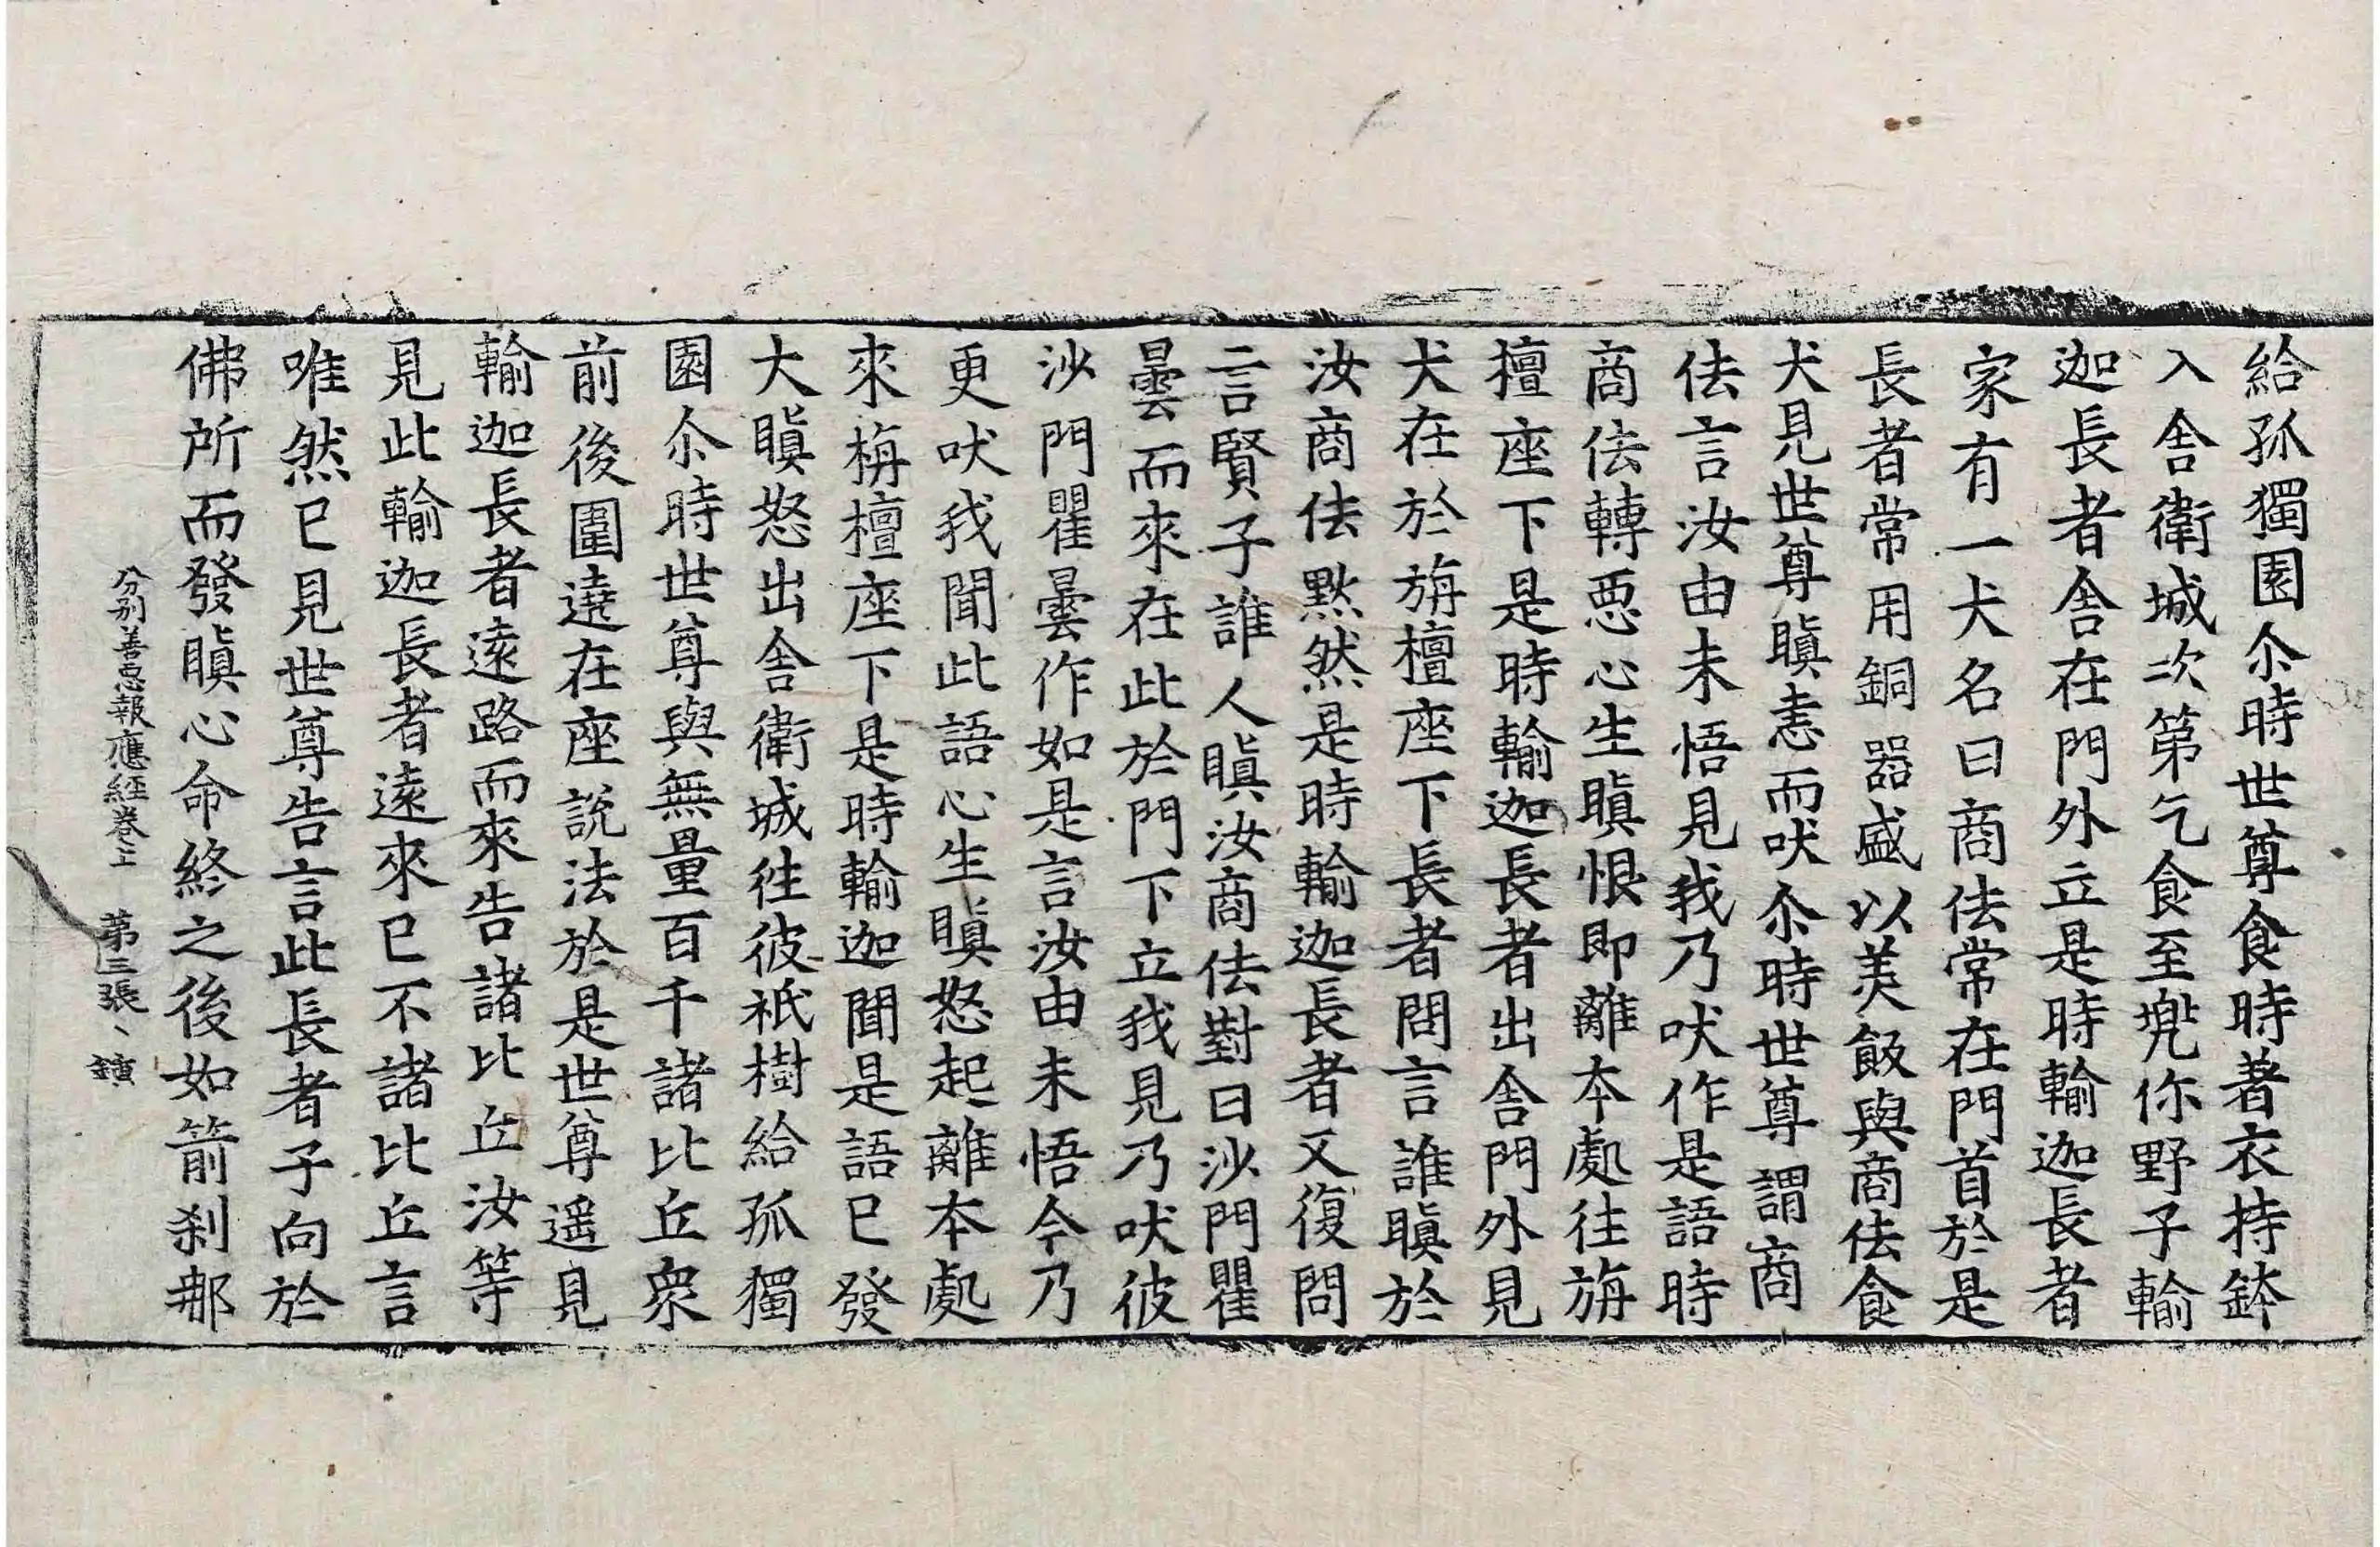 給孤獨園尒時世尊食時著衣持鉢
入舍衛城次第乞食至兠你野子輸
迦長者舍在門外立是時輸迦長者
家有一犬名曰商佉常在門首於是
長者常用銅器盛以美飯與商佉食
犬見世尊瞋恚而吠尒時世尊謂商
佉言汝由未悟見我乃吠作是語時
商佉轉惡心生瞋恨即離本處往旃
檀座下是時輸迦長者出舍門外見
犬在於旃檀座下長者問言誰瞋於
汝商佉默然是時輸迦長者又復問
言賢子誰人瞋汝商佉對曰沙門瞿
曇而來在此於門下立我見乃吠彼
沙門瞿曇作如是言汝由未悟今乃
更吠我聞此語心生瞋怒起離本處
來栴檀座下是時輸迦聞是語已發
大瞋怒出舍衛城往彼祇樹給孤獨
園尒時世尊與無量百千諸比丘眾
前後圍遶在座說法於是世尊遥見
輸迦長者遠路而來告諸比丘汝等
見此輸迦長者遠來已不諸比丘言
唯然已見世尊告言此長者子向於
佛所而發瞋心命終之後如箭刹那
分別善惡報應經卷上　第三張、　鐼